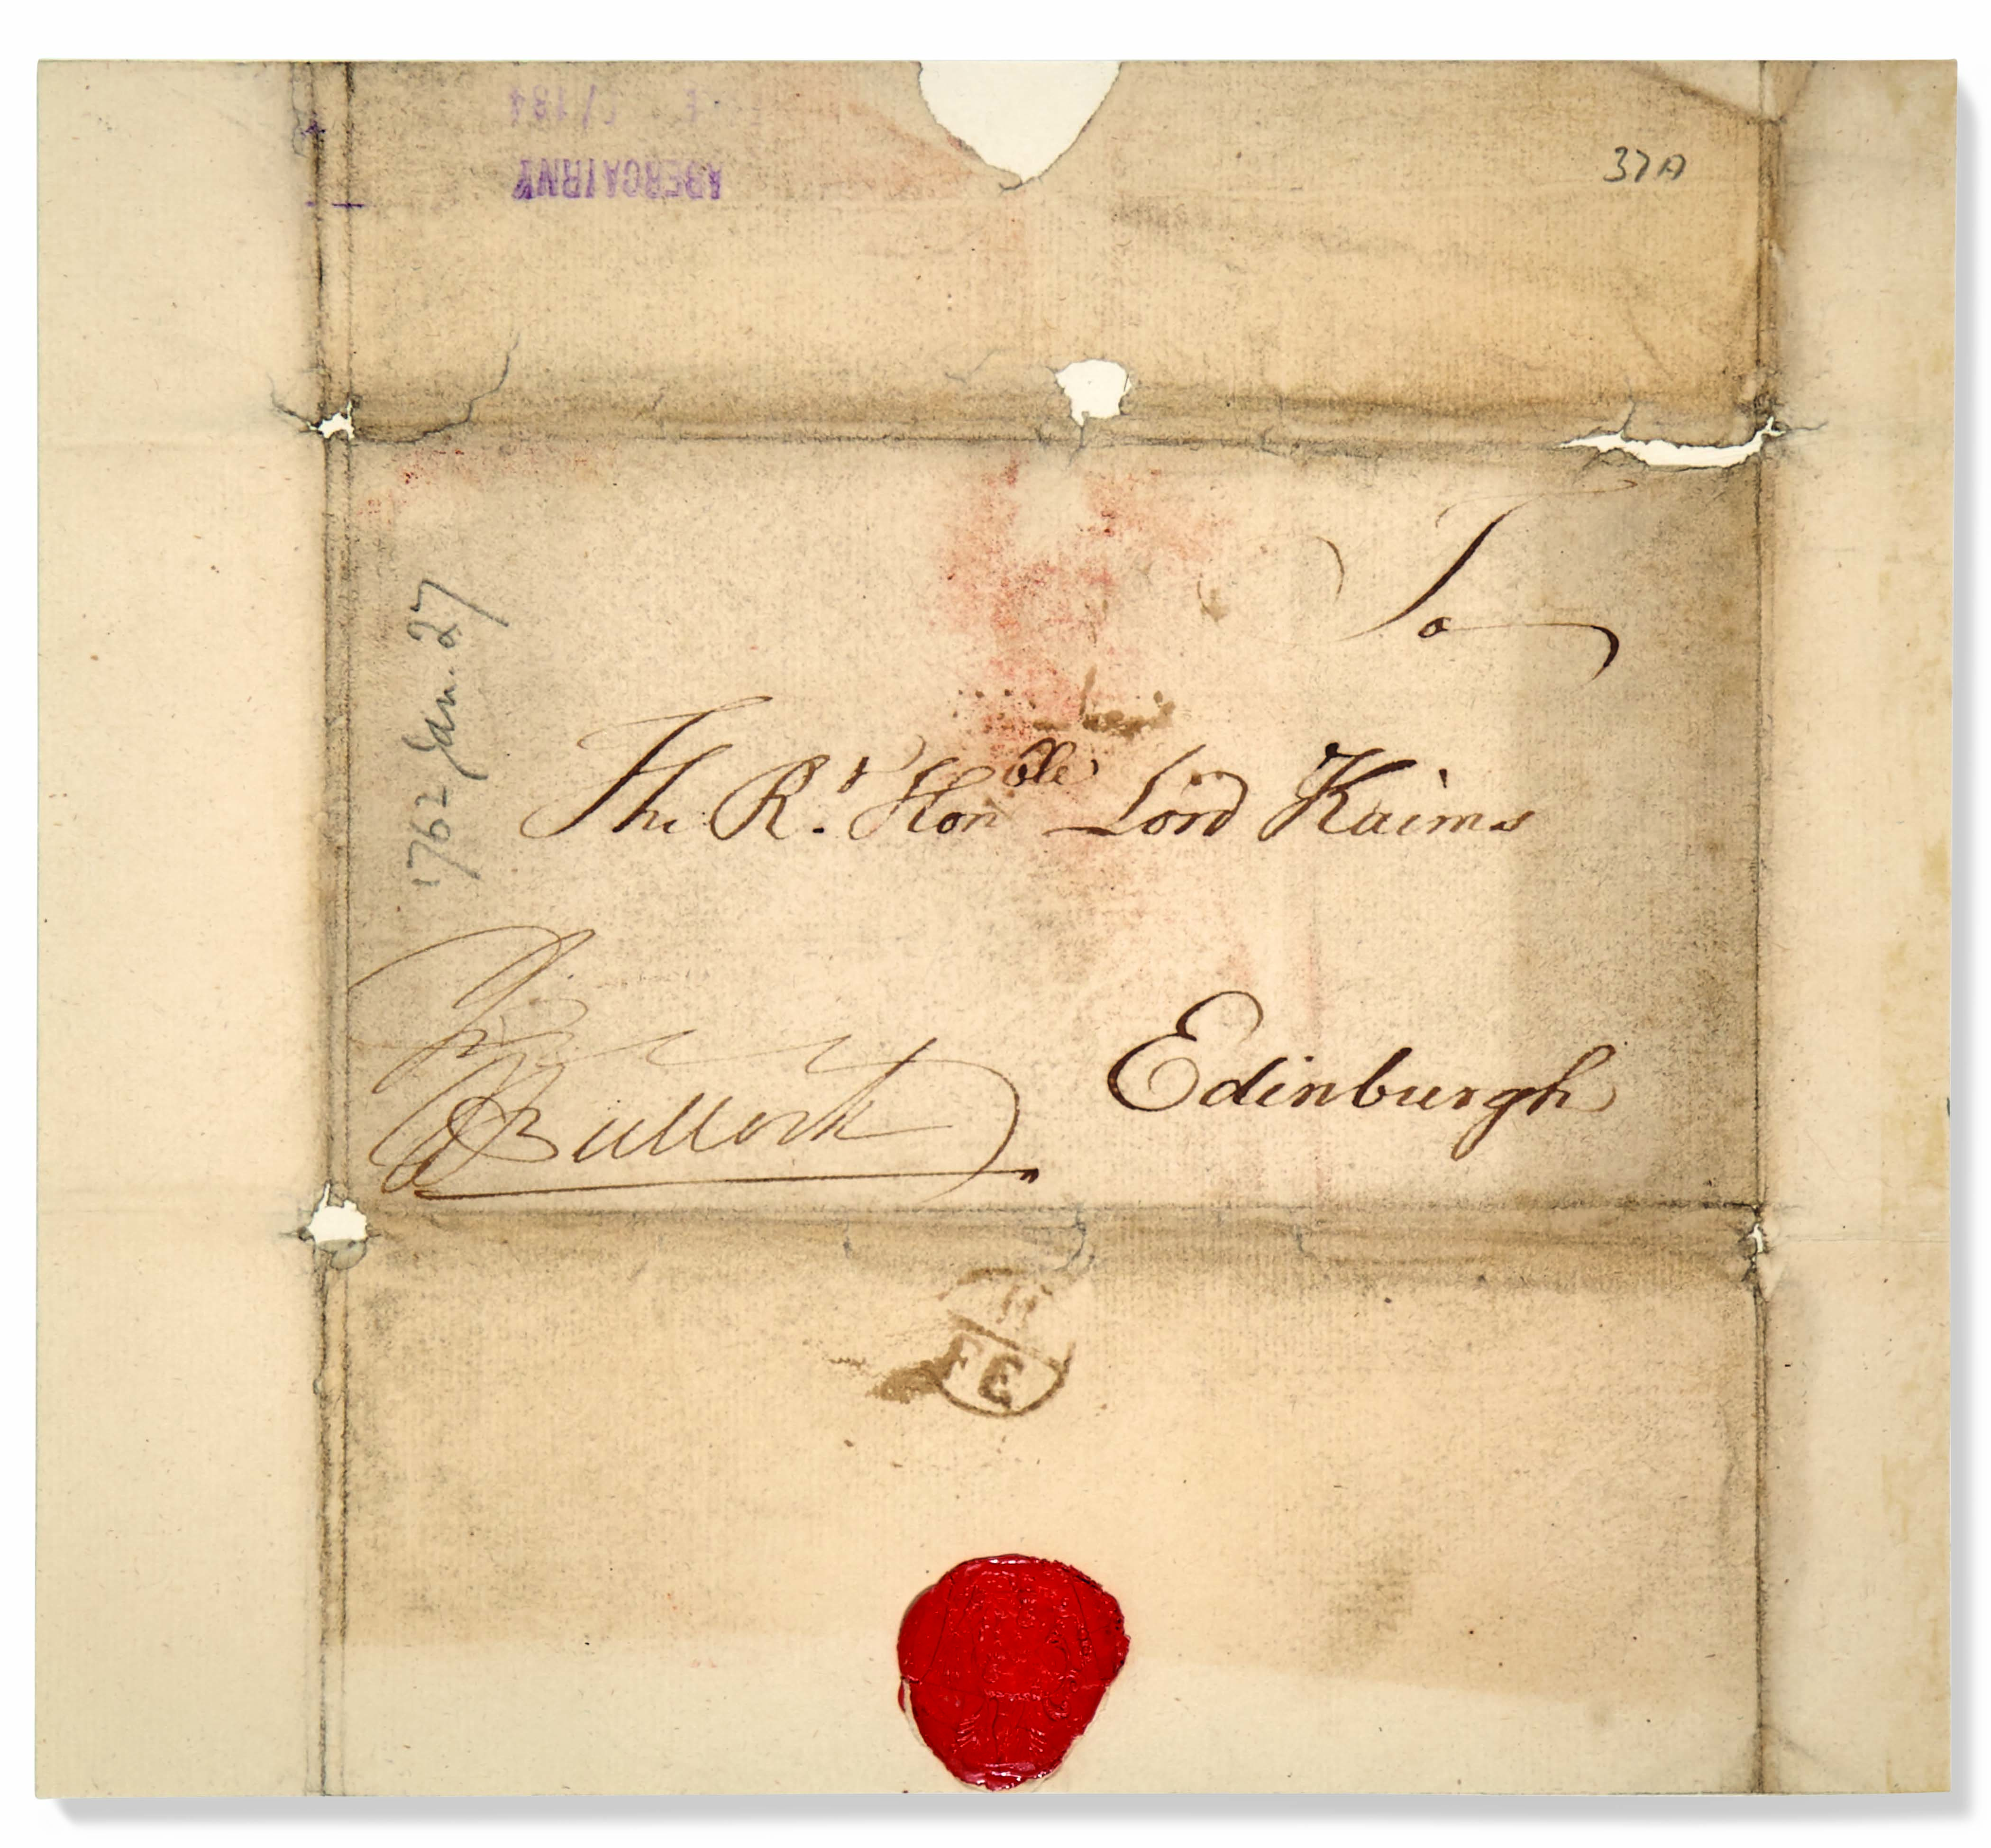 ABERCAIRNY
/184
37A
1762 Jan. 27
To
The Rt. Honble Lord Kaims
Edinburgh
Bullock
FE